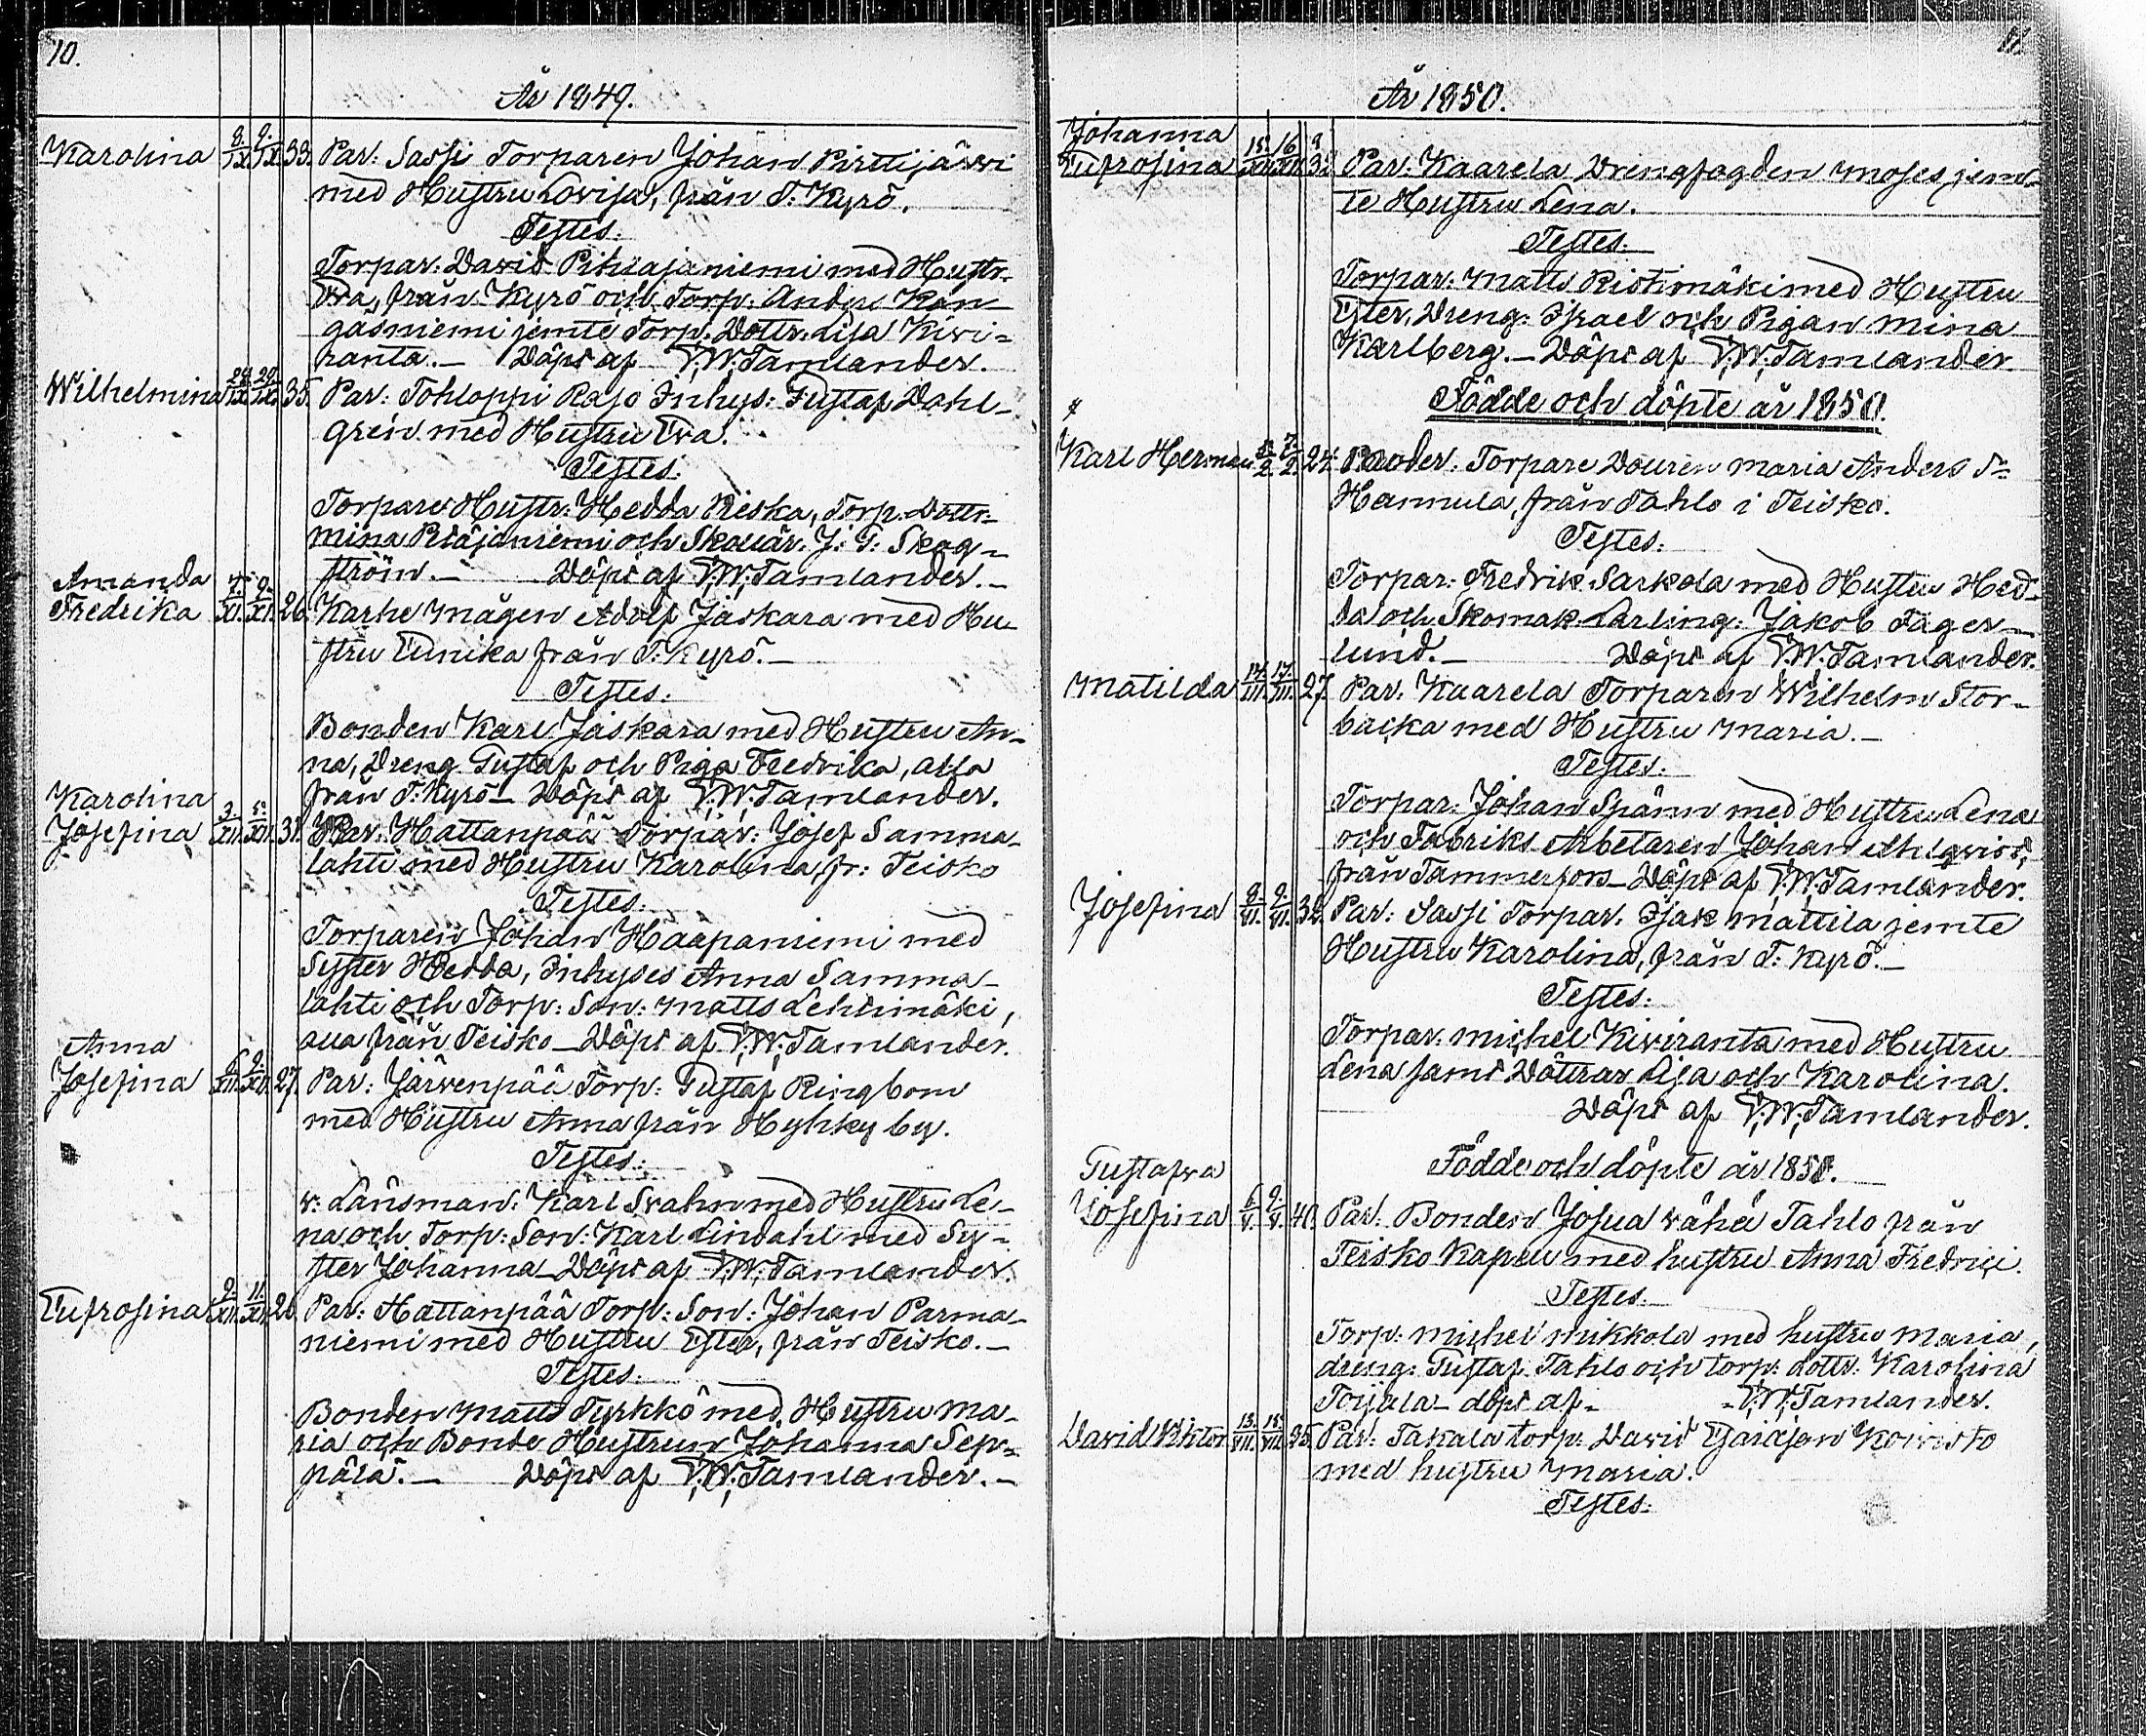 10.
År 1849.
Karolina 8./IX. 9./IX. 33. Par: Sassi Torparen Johan Pirttijärvi
med Hustru Lovisa, från T. Kyrö.
Testes:
Torpar: David Pihlajaniemi med Hustr.
Eva, från Kyrö och Torp: Anders Kan-
gasniemi jemte Torp. Dottr. Lisa Kivi-
ranta. — Döpt af F. W. Tamlander.
Wilhelmina 35. Par: Tohloppi Rajo Inhys: Gustaf Dahl-
gren med Hustru Eva.
Testes:
Torpare Hustr: Hedda Riska, Torp. Dottr.
Mina och J: G: Skog-
ström. — Döpt af F. W. Tamlander. —
Amanda
Fredrika 7./XI. 9./XI. 26. Karhe Mågen Adolf Jaskara med Hu-
stru Eunika från T. Kyrö. —
Testes:
Bonden Karl Jaskara med Hustru An-
na, Dreng Gustaf och Piga Fredrika, alla
från T. Kyrö — Döpt af F. W. Tamlander.
Karolina
Josefina 3./XII. 5./XII. 31. Par: Hattanpää Torpar: Josef Samma-
lahti med Hustru Karolina, fr: Teisko
Testes:
Torparen Johan Haapaniemi med
Syster Hedda, Inhyses Anna Samma-
lahti och Torp: Son: Matts Lehtimäki,
alla från Teisko — Döpt af F. W. Tamlander.
Anna
Josefina 6./XII. 9./XII. 27. Par: Järvenpää Torp: Gustaf Ringbom
med Hustru Anna från Hyhky by.
Testes:
v: Länsman: Karl Svahn med Hustru Le-
na och Torp: Son: Karl Lindahl med Sy-
ster Johanna — Döpt af F. W. Tamlander.
Eufrosina 9./XII. 11./XII. Par: Hattanpää Torp: Son: Johan Parma-
niemi med Hustru Ester, från Teisko. —
Testes:
Bonden Matts Tyrkkö med Hustru Ma-
ria och Bonde Hustrun Johanna Sep-
pälä. — Döpt af F. W. Tamlander. —
11.
År 1850.
Johanna
Eufrosina 15./XII. 16/XII. Par: Kaarela Drengfogden Moses jem-
te Hustru Lena.
Testes:
Torpar: Matts Ristimäki med Hustru
Ester, Dreng: Israel och Pigan Mina
Karlberg. — Döpt af F. W. Tamlander.
Födde och döpte år 1850.
Karl Herman 5./2. 7./2. 24. Torpare Maria Anders Dr
Hannula, från Tahlo i Teisko.
Testes:
Torpar: Fredrik Sarkola med Hustru Hed-
da och Skomak. Lärling: Jakob Fager-
lund. — Döpt af F. W. Tamlander.
Matilda 14./III. 17./III. 27. Par: Kaarela Torparen Wilhelm Stor-
backa med Hustru Maria. —
Testes:
Torpar: Johan Spänn med Hustru Lena
och Fabriks Arbetaren Johan Ahlqvist,
från Tammerfors — Döpt af F. W. Tamlander.
Josefina 8./VI. 9./VI. 32. Par: Sassi Torpar: Isak Mattila jemte
Hustru Karolina, från T. Kyrö. —
Testes:
Torpar: Michel Kiviranta med Hustru
Lena samt Döttrar Lisa och Karolina.
Döpt af F. W. Tamlander.
Födde och döpte år
Gustafva
Josefina 6./V. 9./V. 40. Par: Bonden Josua Vähä Tahlo från
Teisko Kapell med hustru Anna Fredrici.
Testes:
Torp: Michel Mikkola med hustru Maria,
dreng: Gustaf Tahlo och torp: dottr: Karolina
döpt af — F. W. Tamlander.
David Viktor 13./VII. Par: Takala torp: David Koivisto
med hustru Maria.
Testes: